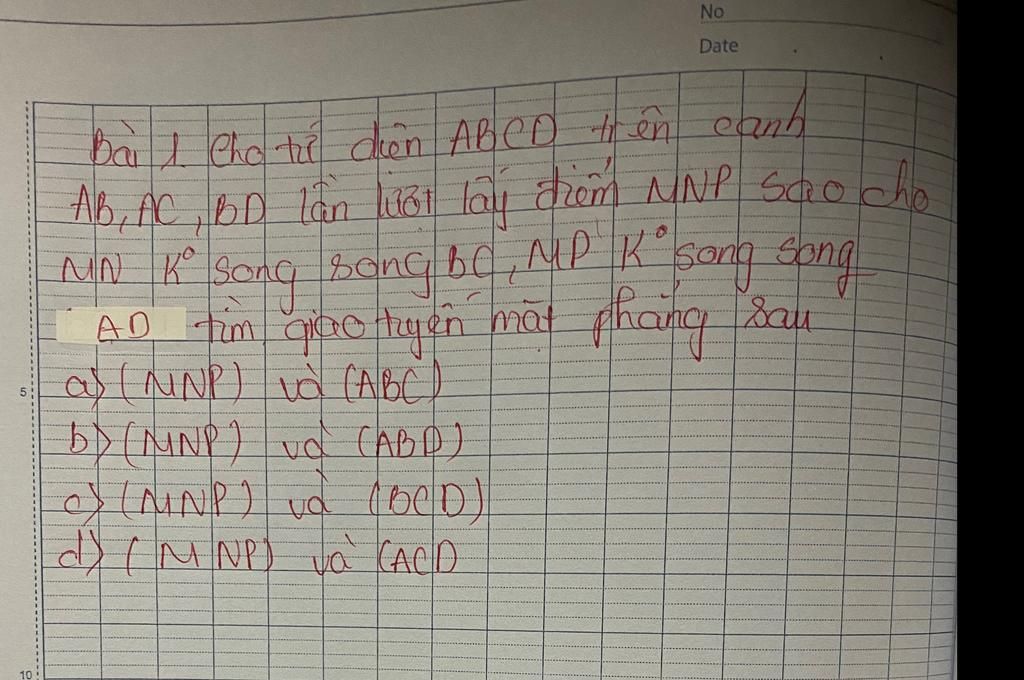 No
Date
Bài 1 Cho tứ diện ABCD trên cạnh
AB, AC, BD lần lượt lấy điểm MNP sao cho
MN Kº song song BC, MP Kº song song
AD tìm giao tuyến mặt phẳng sau
a) (MNP) và (ABC)
b) (MNP) và (ABD)
c) (MNP) và (BCD)
d) (MNP) và (ACD
5
10